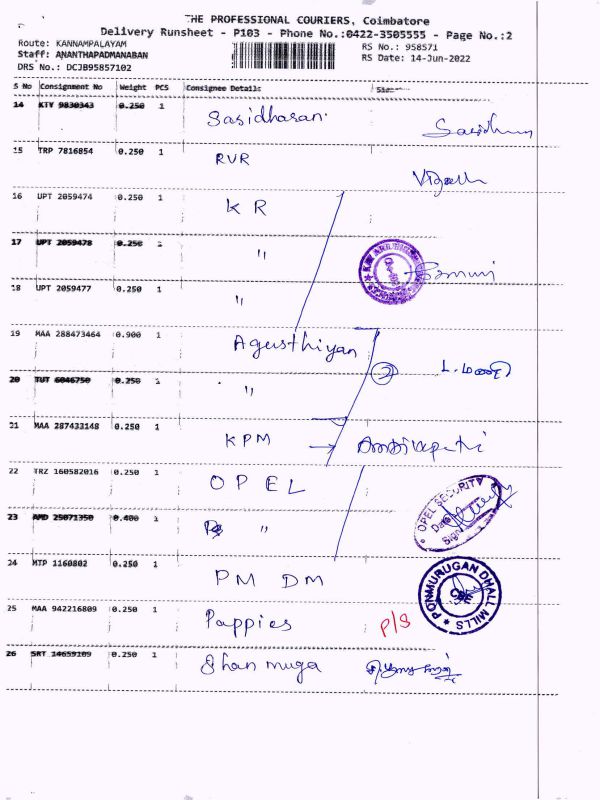 THE PROFESSIONAL COURIERS, Coimbatore
Delivery Runsheet - P103 - Phone No.:0422-3505555 - Page No.:2
Route: KANNAMPALAYAM
RS No.: 958571
Staff: ANANTHAPADMANABAN
RS Date: 14-Jun-2022
DRS No.: DCJB95857102
S No Consignment No Weight PCS Consignee Details
14 KTY 9830343 0.250 1 Sasidharan.
15 TRP 7816854 0.250 1 RVR
16 UPT 2059474 0.250 1 K R
17 UPT 2059478 0.250 1 "
18 UPT 2059477 0.250 1 "
19 MAA 288473464 0.900 1 Agusthiyan
20 TUT 6046750 0.250 1 " 2
21 MAA 287433148 0.250 1 KPM
22 TRZ 160582016 0.250 1 OPEL
OPEL SECURITY
Date
Sign
23 AMD 25071350 0.400 1 "
24 MTP 1160802 0.250 1 PM DM
PONMURUGAN DHALL MILLS
CBE
25 MAA 942216809 0.250 1 Pappies P/S
26 SRT 14659109 0.250 1 Shanmuga